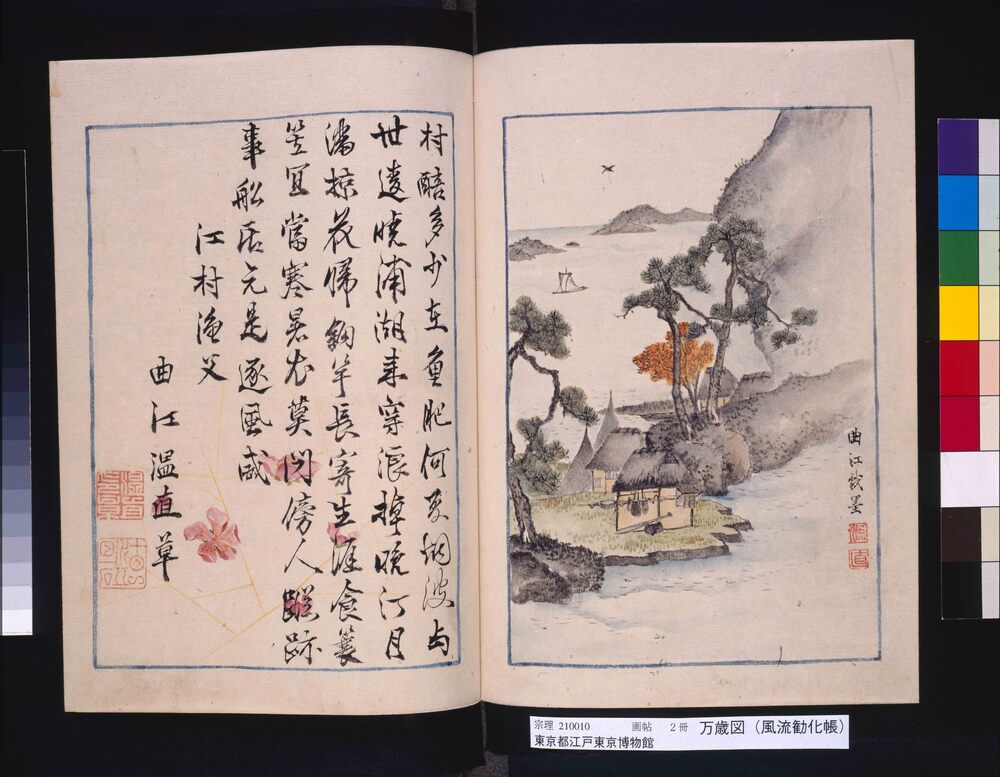 曲江戯墨
村醅多少在魚肥何烟波与
世違曉浦潮来穿浪棹晩汀月
滿掠花帰釣竿長寄生涯食簑
笠宜當寒暑衣莫問傍人蹤跡
事船居元是逐風威
江村漁父
曲江温直草
宗理 210010 画帖 2冊 万歳図（風流勧化帳）
東京都江戸東京博物館